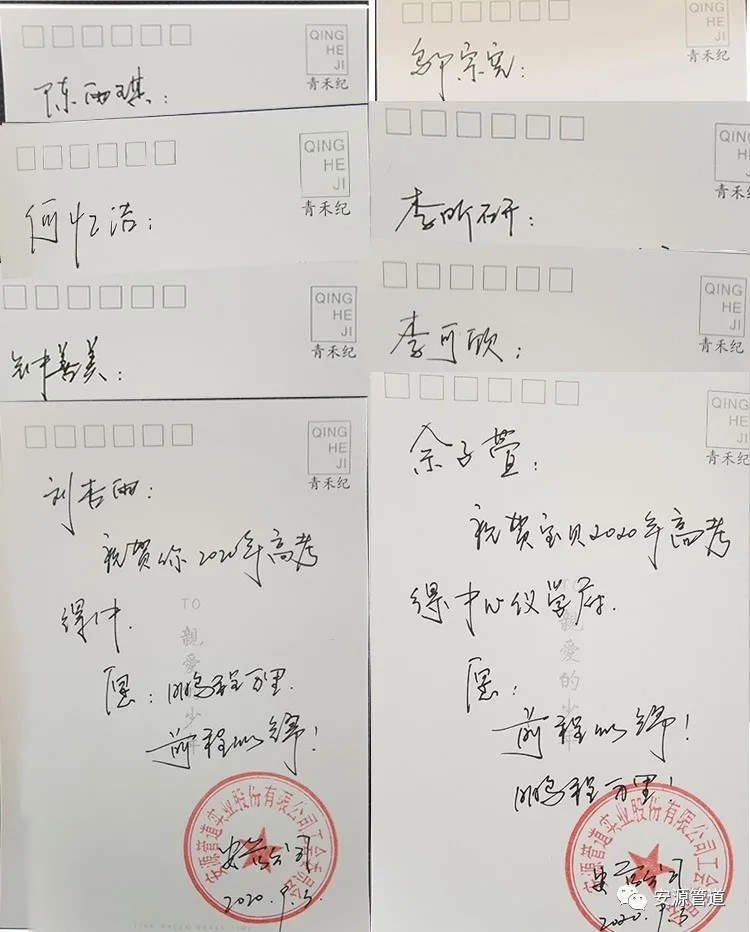 QING
HE
JI
青禾纪
陈雨琪：
QING
HE
JI
青禾纪
何忆洁：
QING
HE
JI
青禾纪
钟善美：
QING
HE
JI
青禾纪
刘杏雨：
祝贺你2020年高考
得中.
TO
親愛
少
愿：鹏程万里.
前程似锦！
安源管道实业股份有限公司工会
安源公司
2020.9.3
QING
HE
JI
青禾纪
邹宗宪：
QING
HE
JI
青禾纪
李昕研：
QING
HE
JI
青禾纪
李可欣：
QING
HE
JI
青禾纪
余子萱：
祝贺宝贝2020年高考
得中心仪学府.
TO
親愛的少
愿：
前程似锦！
鹏程万里！
安源管道实业股份有限公司工会
2020.9.3
安源管道